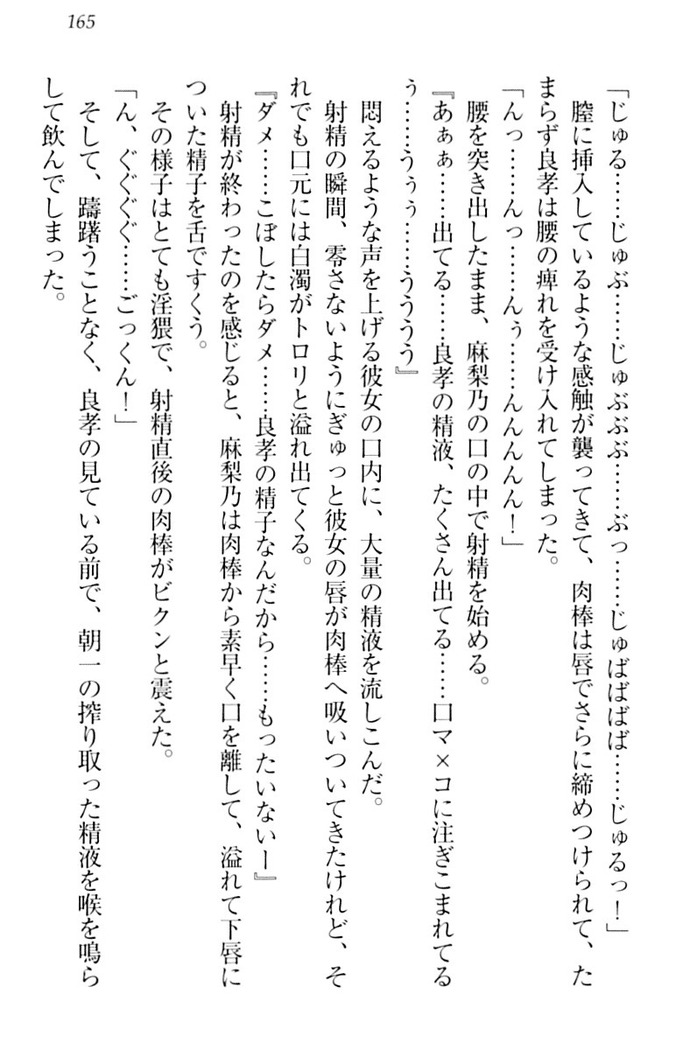 165
「じゅる……じゅぶ……じゅぶぶぶ……ぶっ……じゅばばばば……じゅるっ！」
膣に挿入しているような感触が襲ってきて、肉棒は唇でさらに締めつけられて、た
まらず良孝は腰の痺れを受け入れてしまった。
「んっ……んっ……んぅ……んんんんん！」
腰を突き出したまま、麻梨乃の口の中で射精を始める。
『あぁぁ……出てる……良孝の精液、たくさん出てる……口マ×コに注ぎこまれてる
ぅ……うぅぅ……うううう』
悶えるような声を上げる彼女の口内に、大量の精液を流しこんだ。
射精の瞬間、零さないようにぎゅっと彼女の唇が肉棒へ吸いついてきたけれど、そ
れでも口元には白濁がトロリと溢れ出てくる。
『ダメ……こぼしたらダメ……良孝の精子なんだから……もったいないー』
射精が終わったのを感じると、麻梨乃は肉棒から素早く口を離して、溢れて下唇に
ついた精子を舌ですくう。
その様子はとても淫猥で、射精直後の肉棒がビクンと震えた。
「ん、ぐぐぐぐ……ごっくん！」
そして、躊躇うことなく、良孝の見ている前で、朝一の搾り取った精液を喉を鳴ら
して飲んでしまった。